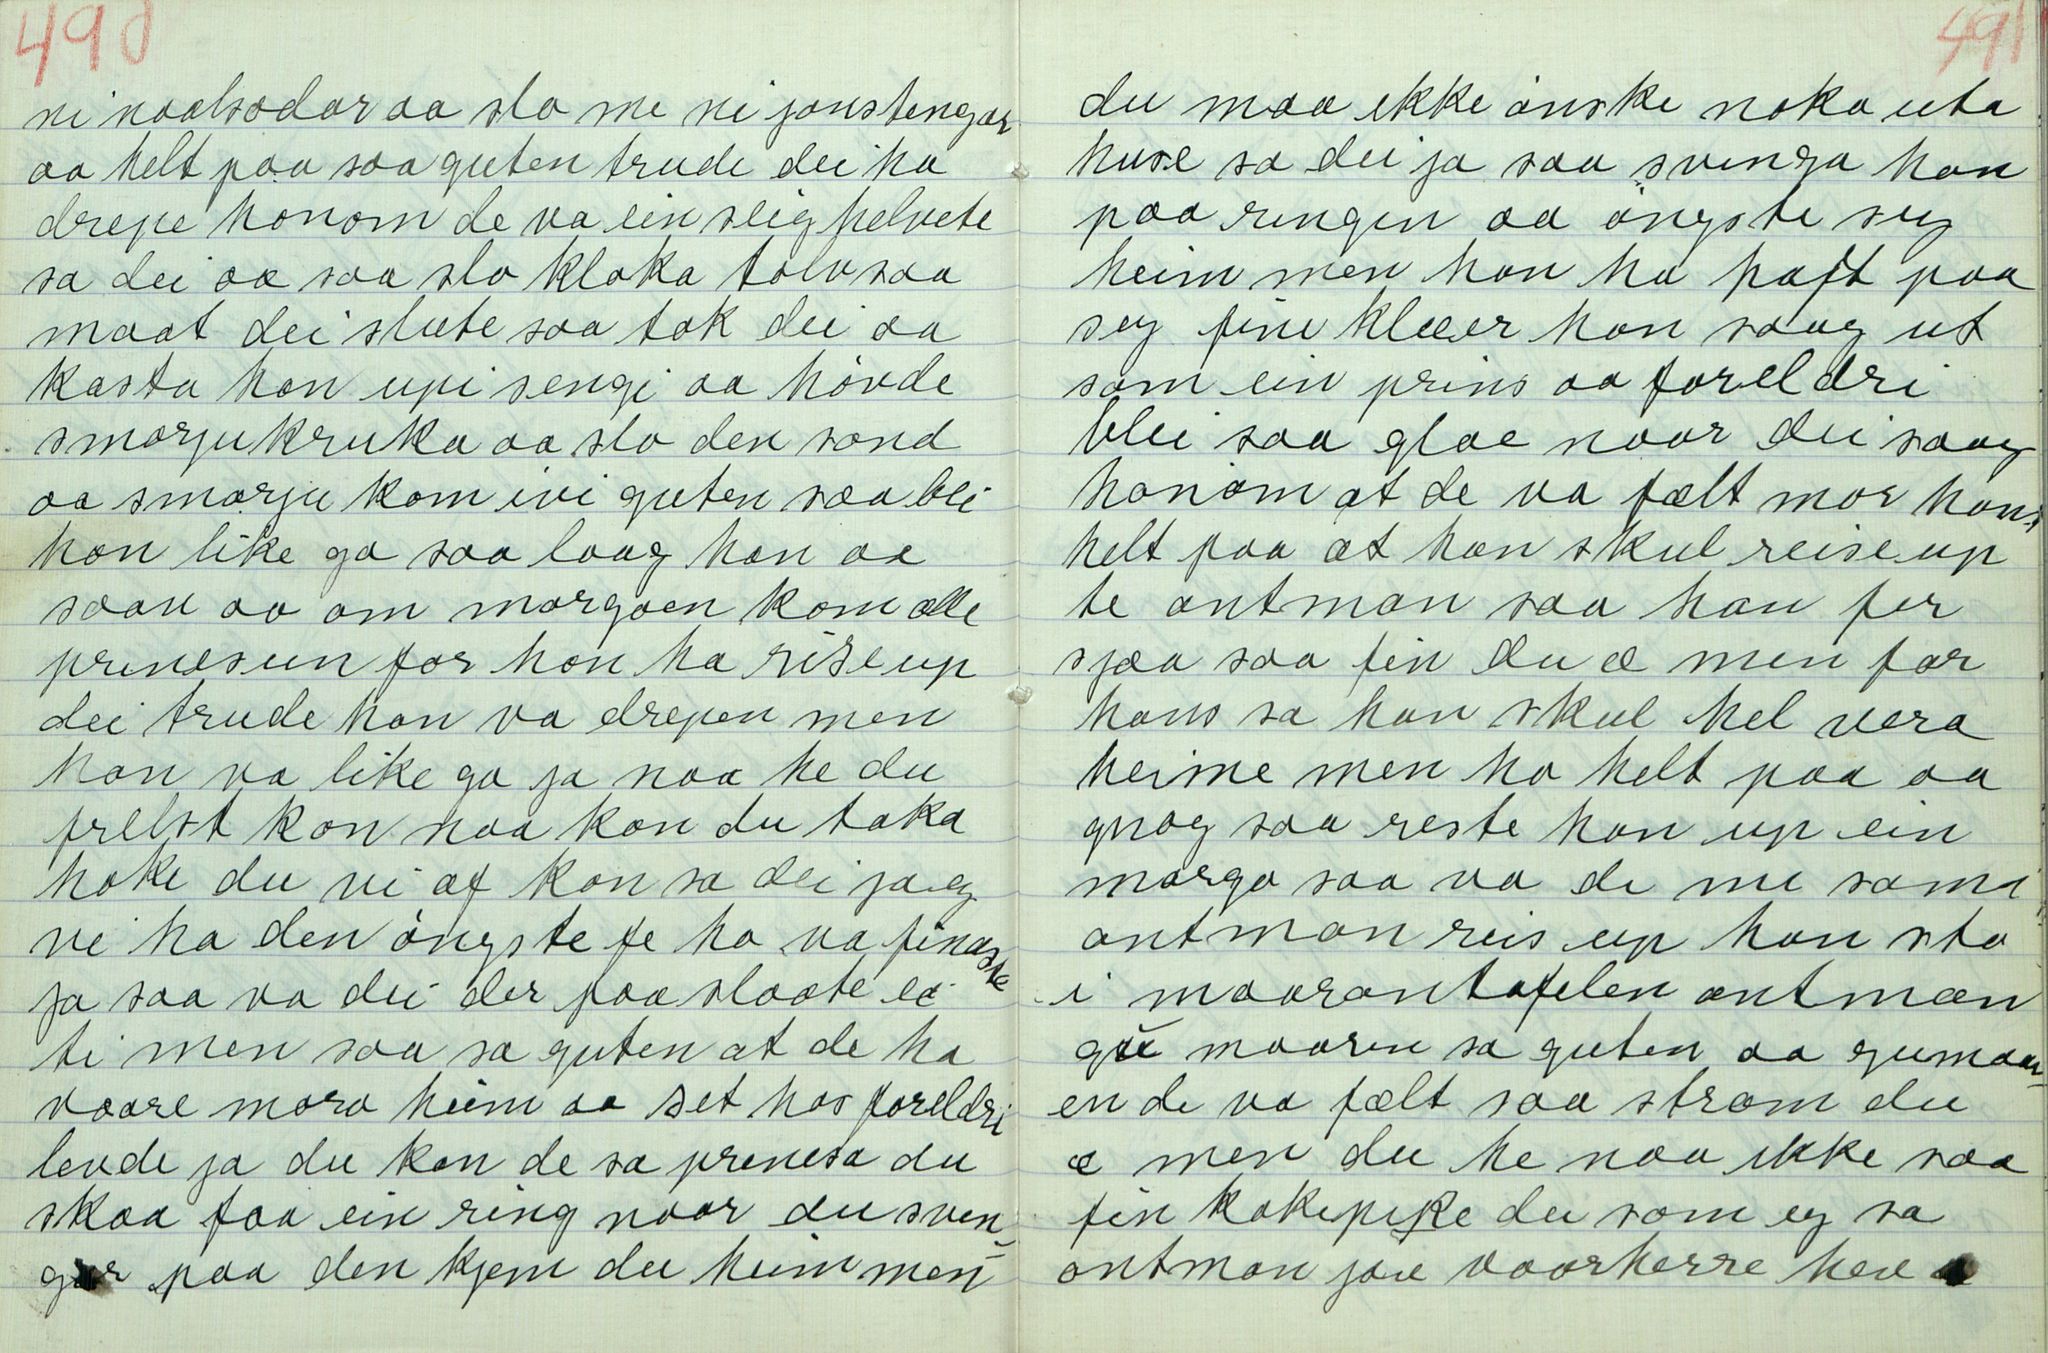 490
ni naalsodar aa slo me ni jonstengar
aa helt paa saa guten trude dei ha
drepe honom de va ein slig helvete
sa dei aa saa slo kloka tolv saa
maat dei slute saa tok dei aa
kasta han upi sengi aa hövde
smorjukruka aa slo den sond
aa smorju kom ivi guten saa blei
han like go saa laag han aa
saav aa om morgoen kom alle
prinesun for han ha rise up
dei trude han va drepen men
han va like go ja naa he du
frelst kon naa kan du taka
hoke du vi af kon sa dei ja eg
vi ha den öngste fe ho va finaste
ja saa va dei der paa slaate ei
ti men saa sa guten at de ha
vaare moro heim aa set hos foreldri
levde ja du kan de sa prinesa du
skaa faa ein ring naar du sven-
gar paa den kjem du heim men
491
du maa ikke önske noko uta
huse sa dei ja saa svinga han
paa ringen aa öngste seg
heim men han ha haft paa
seg fine klæer han saag ut
som ein prins aa foreldri
blei saa glae naar dei saag
honom at de va fælt mor hans
helt paa at han skul reise up
te antman saa han fer
sjaa saa fin du æ men far
hans sa han skul hel vera
heime men ho helt paa aa
gnog saa reste han up ein
morgo saa va de me same
antman reis up han sto
i maarantøfelen antman
gu maaren sa guten aa gumaar-
en de va fælt saa stram du
æ men du he naa ikke saa
fin kokepike du som eg sa
antman jau vaarherre hev